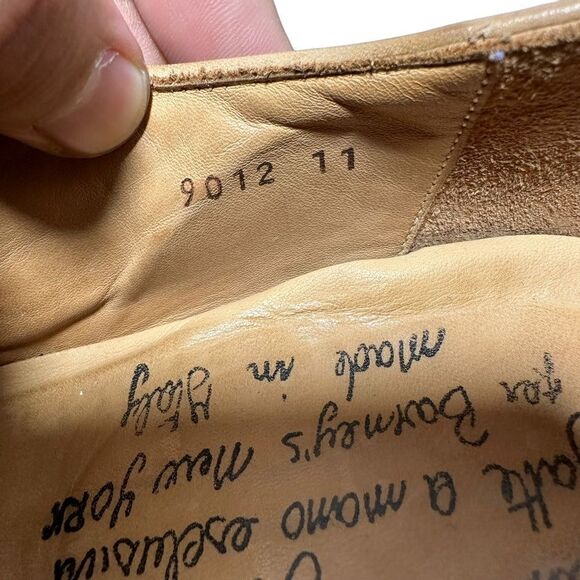 9012 11
fatte a mano esclusiva
per Barney's New York
made in Italy